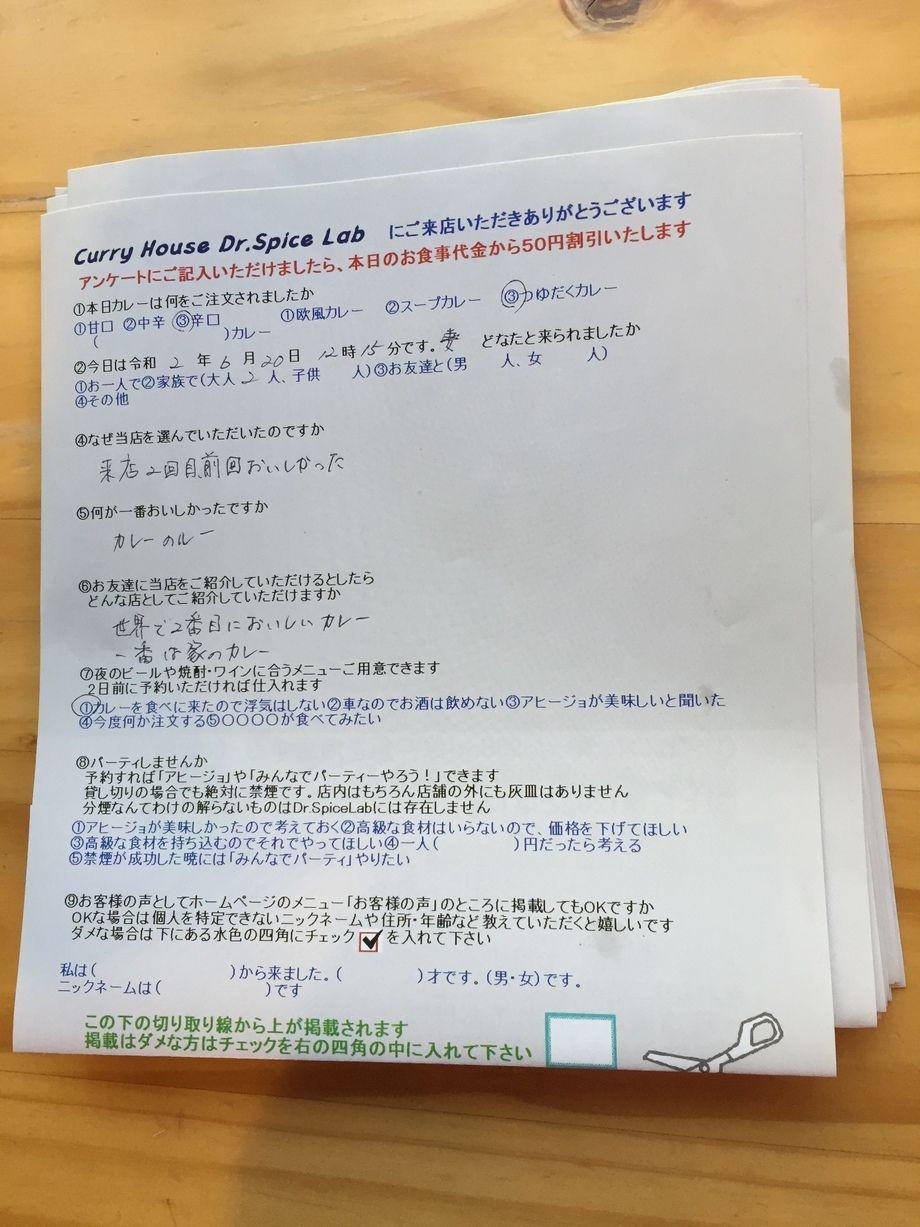 Curry House Dr.Spice Lab にご来店いただきありがとうございます
アンケートにご記入いただけましたら、本日のお食事代金から50円割引いたします
①本日カレーは何をご注文されましたか
①甘口 ②中辛 ③辛口 ①欧風カレー ②スープカレー ③つゆだくカレー
( )カレー
②今日は令和 2 年 6 月 20 日 12 時 15 分です。妻 どなたと来られましたか
①お一人で②家族で(大人 2 人、子供 人)③お友達と(男 人、女 人)
④その他
④なぜ当店を選んでいただいたのですか
来店2回目前回おいしかった
⑤何が一番おいしかったですか
カレーのルー
⑥お友達に当店をご紹介していただけるとしたら
どんな店としてご紹介していただけますか
世界で2番目においしいカレー
一番は家のカレー
⑦夜のビールや焼酎・ワインに合うメニューご用意できます
2日前に予約いただければ仕入れます
①カレーを食べに来たので浮気はしない②車なのでお酒は飲めない③アヒージョが美味しいと聞いた
④今度何か注文する⑤〇〇〇〇が食べてみたい
⑧パーティしませんか
予約すれば「アヒージョ」や「みんなでパーティーやろう！」できます
貸し切りの場合でも絶対に禁煙です。店内はもちろん店舗の外にも灰皿はありません
分煙なんてわけの解らないものはDr.SpiceLabには存在しません
①アヒージョが美味しかったので考えておく②高級な食材はいらないので、価格を下げてほしい
③高級な食材を持ち込むのでそれでやってほしい④一人( )円だったら考える
⑤禁煙が成功した暁には「みんなでパーティ」やりたい
⑨お客様の声としてホームページのメニュー「お客様の声」のところに掲載してもOKですか
OKな場合は個人を特定できないニックネームや住所・年齢など教えていただくと嬉しいです
ダメな場合は下にある水色の四角にチェック を入れて下さい
私は( )から来ました。( )才です。(男・女)です。
ニックネームは( )です
この下の切り取り線から上が掲載されます
掲載はダメな方はチェックを右の四角の中に入れて下さい